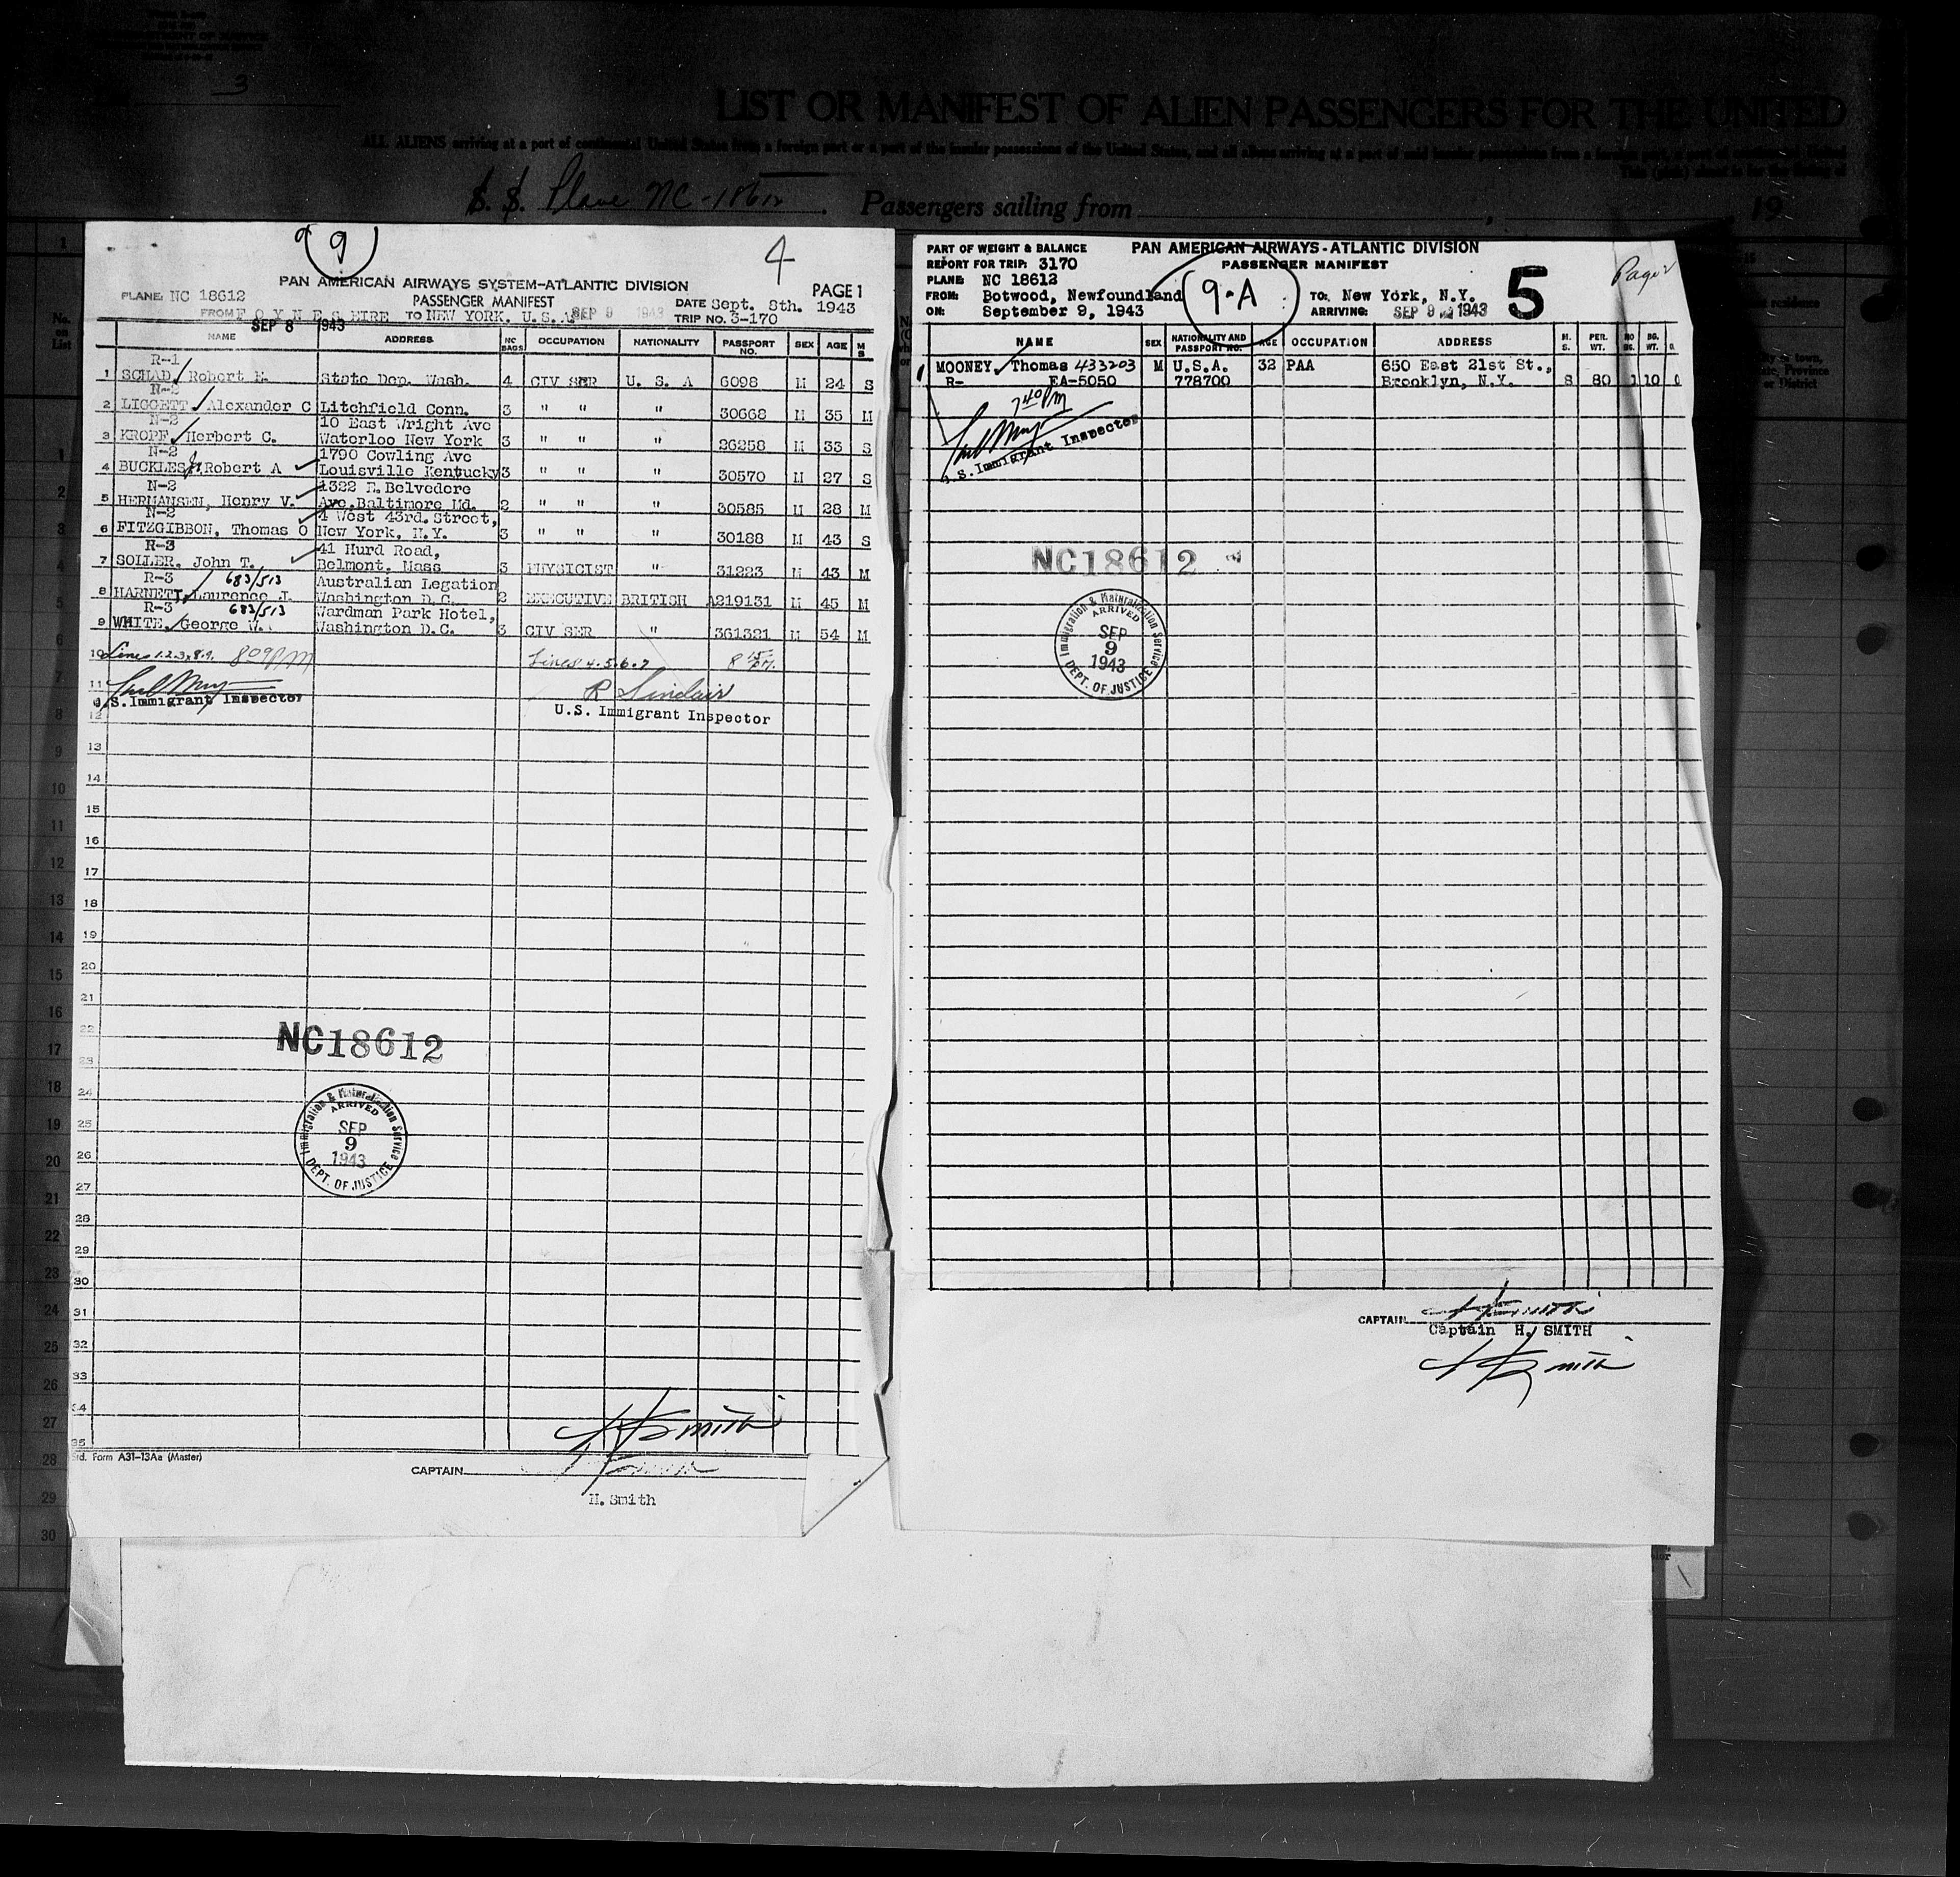 3
LIST OR MANIFEST OF ALIEN PASSENGERS FOR THE UNITED
ALL ALIENS arriving at a port of continental United States from a foreign port or a port of the insular possessions of the United States, and all aliens arriving at a port of said insular possessions from a foreign port, a port of continental United
S. S. Plane NC-18612. Passengers sailing from , 19
9 9
4
PAN AMERICAN AIRWAYS SYSTEM-ATLANTIC DIVISION
PAGE 1
PLANE: NC 18612 PASSENGER MANIFEST DATE Sept. 8th. 1943
FROM FOYNES EIRE TO NEW YORK. U. S. A SEP 9 1943 TRIP NO. 3-170
SEP 8 1943
NAME ADDRESS NO BAGS OCCUPATION NATIONALITY PASSPORT NO. SEX AGE M S
R-1
1 SCHAD, Robert E. State Dep. Wash. 4 CIV SER U. S. A 6098 M 24 S
N-2
2 LIGGETT, Alexander C Litchfield Conn. 3 " " " 30668 M 35 M
N-2 10 East Wright Ave
3 KROPF, Herbert C. Waterloo New York 3 " " " 26258 M 33 S
N-2 1790 Cowling Ave
4 BUCKLES Jr, Robert A Louisville Kentucky 3 " " " 30570 M 27 S
N-2 1322 E. Belvedere
5 HERMANSEN, Henry V. Ave. Baltimore Md. 2 " " " 30585 M 28 M
N-2 4 West 43rd. Street,
6 FITZGIBBON, Thomas O New York, N.Y. 3 " " " 30188 M 43 S
R-3 41 Hurd Road,
7 SOLLER, John T. Belmont, Mass 3 PHYSICIST " 31223 M 43 M
R-3 683/513 Australian Legation
8 HARNETT, Laurence J. Washington D.C. 2 EXECUTIVE BRITISH A219131 M 45 M
R-3 683/513 Wardman Park Hotel,
9 WHITE, George W. Washington D.C. 3 CIV SER " 361321 M 54 M
10 Lines 1.2.3.8.9. 8 09 PM Lines 4.5.6.7 8 15 PM.
11 R Sinclair
S. Immigrant Inspector U.S. Immigrant Inspector
12
13
14
15
16
17
18
19
20
21
22
NC18612
23
24
Immigration & Naturalization Service
ARRIVED
SEP
9
1943
DEPT. OF JUSTICE
25
26
27
28
29
30
31
32
33
34
35
H Smith
Std. Form A31-13Aa (Master)
CAPTAIN H Smith
H. Smith
PART OF WEIGHT & BALANCE PAN AMERICAN AIRWAYS-ATLANTIC DIVISION
REPORT FOR TRIP: 3170 PASSENGER MANIFEST
Page 2
PLANE: NC 18612
9-A
5
FROM: Botwood, Newfoundland TO: New York, N.Y.
ON: September 9, 1943 ARRIVING: SEP 9 1943
NAME SEX NATIONALITY AND PASSPORT NO. AGE OCCUPATION ADDRESS M. S. PER. WT. NO BG. BG. WT. D.
1 MOONEY, Thomas 433203 M U.S.A. 32 PAA 650 East 21st St.,
R- EA-5050 778700 Brooklyn, N.Y. S 80 1 10 0
7 40 PM
S. Immigrant Inspector
NC18612
Immigration & Naturalization Service
ARRIVED
SEP
9
1943
DEPT. OF JUSTICE
CAPTAIN H Smith
Captain H. SMITH
H Smith